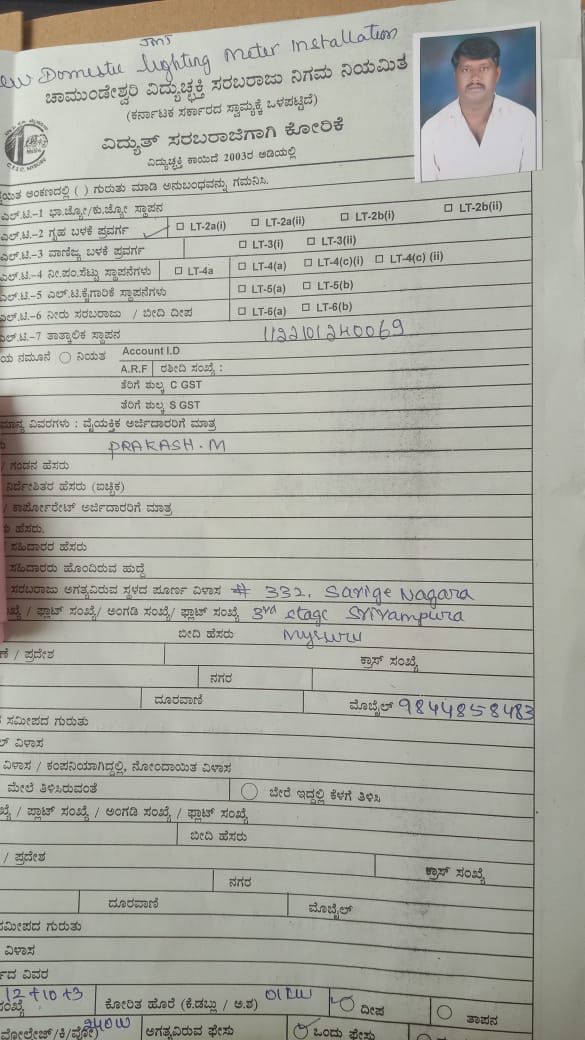 JMJ
Domestic lighting Meter Installation
ಚಾಮುಂಡೇಶ್ವರಿ ವಿದ್ಯುಚ್ಛಕ್ತಿ ಸರಬರಾಜು ನಿಗಮ ನಿಯಮಿತ
(ಕರ್ನಾಟಕ ಸರ್ಕಾರದ ಸ್ವಾಮ್ಯಕ್ಕೆ ಒಳಪಟ್ಟಿದೆ)
ವಿದ್ಯುತ್ ಸರಬರಾಜಿಗಾಗಿ ಕೋರಿಕೆ
ವಿದ್ಯುಚ್ಛಕ್ತಿ ಕಾಯಿದೆ 2003ರ ಅಡಿಯಲ್ಲಿ
ಅಂಕಣದಲ್ಲಿ ( ) ಗುರುತು ಮಾಡಿ ಅನುಬಂಧವನ್ನು ಗಮನಿಸಿ.
ಎಲ್.ಟಿ.–1 ಭಾ.ಜ್ಯೋ/ಕು.ಜ್ಯೋ ಸ್ಥಾಪನ
ಎಲ್.ಟಿ.–2 ಗೃಹ ಬಳಕೆ ಪ್ರವರ್ಗ ✓ □ LT-2a(i) □ LT-2a(ii) □ LT-2b(i) □ LT-2b(ii)
ಎಲ್.ಟಿ.–3 ವಾಣಿಜ್ಯ ಬಳಕೆ ಪ್ರವರ್ಗ □ LT-3(i) □ LT-3(ii)
ಎಲ್.ಟಿ.–4 ನೀ.ಪಂ.ಸೆಟ್ಟು ಸ್ಥಾಪನೆಗಳು □ LT-4a □ LT-4(a) □ LT-4(c)(i) □ LT-4(c) (ii)
ಎಲ್.ಟಿ.–5 ಎಲ್.ಟಿ.ಕೈಗಾರಿಕೆ ಸ್ಥಾಪನೆಗಳು □ LT-5(a) □ LT-5(b)
ಎಲ್.ಟಿ.–6 ನೀರು ಸರಬರಾಜು / ಬೀದಿ ದೀಪ □ LT-6(a) □ LT-6(b)
ಎಲ್.ಟಿ.–7 ತಾತ್ಕಾಲಿಕ ಸ್ಥಾಪನ 1122101240069
ಯ ನಮೂನೆ ○ ನಿಯತ Account I.D
A.R.F ರಶೀದಿ ಸಂಖ್ಯೆ :
ತೆರಿಗೆ ಶುಲ್ಕ C GST
ತೆರಿಗೆ ಶುಲ್ಕ S GST
ಮಾನ್ಯ ವಿವರಗಳು : ವೈಯಕ್ತಿಕ ಅರ್ಜಿದಾರರಿಗೆ ಮಾತ್ರ
PRAKASH.M
/ ಗಂಡನ ಹೆಸರು
ನಿರ್ದೇಶಿತರ ಹೆಸರು (ಐಚ್ಛಿಕ)
/ ಕಾರ್ಪೋರೇಟ್ ಅರ್ಜಿದಾರರಿಗೆ ಮಾತ್ರ
ಹೆಸರು.
ಸಹಿದಾರರ ಹೆಸರು
ಸಹಿದಾರರು ಹೊಂದಿರುವ ಹುದ್ದೆ
ಸರಬರಾಜು ಅಗತ್ಯವಿರುವ ಸ್ಥಳದ ಪೂರ್ಣ ವಿಳಾಸ # 332, Sarige Nagara
/ ಫ್ಲಾಟ್ ಸಂಖ್ಯೆ/ ಅಂಗಡಿ ಸಂಖ್ಯೆ/ ಫ್ಲಾಟ್ ಸಂಖ್ಯೆ 3rd stage Srirampura
ಬೀದಿ ಹೆಸರು Mysuru
/ ಪ್ರದೇಶ ಕ್ರಾಸ್ ಸಂಖ್ಯೆ
ನಗರ
ದೂರವಾಣಿ ಮೊಬೈಲ್ 9844858483
ಸಮೀಪದ ಗುರುತು
ವಿಳಾಸ
ವಿಳಾಸ / ಕಂಪನಿಯಾಗಿದ್ದಲ್ಲಿ, ನೋಂದಾಯಿತ ವಿಳಾಸ
ಮೇಲೆ ತಿಳಿಸಿರುವಂತೆ ○ ಬೇರೆ ಇದ್ದಲ್ಲಿ ಕೆಳಗೆ ತಿಳಿಸಿ
/ ಪ್ಲಾಟ್ ಸಂಖ್ಯೆ / ಅಂಗಡಿ ಸಂಖ್ಯೆ / ಫ್ಲಾಟ್ ಸಂಖ್ಯೆ
ಬೀದಿ ಹೆಸರು
/ ಪ್ರದೇಶ ಕ್ರಾಸ್ ಸಂಖ್ಯೆ
ನಗರ
ದೂರವಾಣಿ ಮೊಬೈಲ್
ಸಮೀಪದ ಗುರುತು
ವಿಳಾಸ
ವಿವರ
12+10+3 ಕೋರಿತ ಹೊರೆ (ಕೆ.ಡಬ್ಲು / ಅ.ಶ) 01KW ದೀಪ ○ ತಾಪನ
240W ಅಗತ್ಯವಿರುವ ಫೇಸು ಒಂದು ಫೇಸು